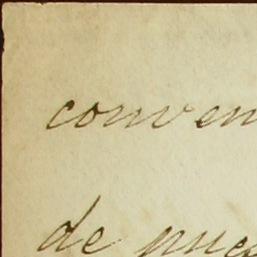 conven
de pues